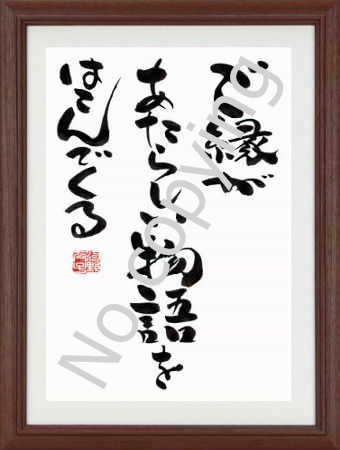 ご縁が
あたらしい物語を
はこんでくる
No copying